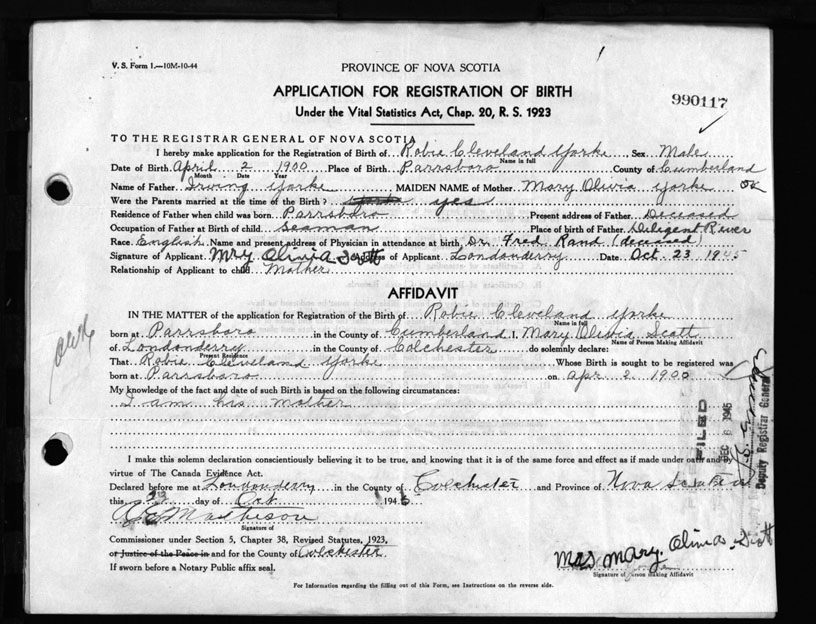 V. S. Form 1.—10M-10-44
PROVINCE OF NOVA SCOTIA
APPLICATION FOR REGISTRATION OF BIRTH
990117
Under the Vital Statistics Act, Chap. 20, R. S. 1923
TO THE REGISTRAR GENERAL OF NOVA SCOTIA
I hereby make application for the Registration of Birth of Robie Cleveland Yorke Sex Male
Name in full
Date of Birth April 2 1900 Place of Birth Parrsboro County of Cumberland
Month Date Year
Name of Father Irving Yorke MAIDEN NAME of Mother Mary Olivia Yorke OK
Were the Parents married at the time of the Birth? yes
Residence of Father when child was born Parrsboro Present address of Father Deceased
Occupation of Father at Birth of child Seaman Place of birth of Father Diligent River
Race English Name and present address of Physician in attendance at birth, Dr. Fred Rand (deceased)
Signature of Applicant Mry Olivia Scott Address of Applicant Londonderry Date Oct 23 1945
Relationship of Applicant to child Mother
AFFIDAVIT
IN THE MATTER of the application for Registration of the Birth of Robie Cleveland Yorke
Name in full
born at Parrsboro in the County of Cumberland I, Mary Olivia Scott
Name of Person Making Affidavit
of Londonderry in the County of Colchester do solemnly declare:
Present Residence
That Robie Cleveland Yorke Whose Birth is sought to be registered was
born at Parrsboro on Apr. 2 1900
My knowledge of the fact and date of such Birth is based on the following circumstances:
I am his mother
FILED
1945
Deputy Registrar General
I make this solemn declaration conscientiously believing it to be true, and knowing that it is of the same force and effect as if made under oath and by
virtue of The Canada Evidence Act.
Declared before me at Londonderry in the County of Colchester and Province of Nova Scotia
this 23 day of Oct 1945
Signature of
Commissioner under Section 5, Chapter 38, Revised Statutes, 1923,
or Justice of the Peace in and for the County of Colchester
If sworn before a Notary Public affix seal.
Mrs Mary. Olivia Scott
Signature of person making Affidavit
For Information regarding the filling out of this Form, see Instructions on the reverse side.